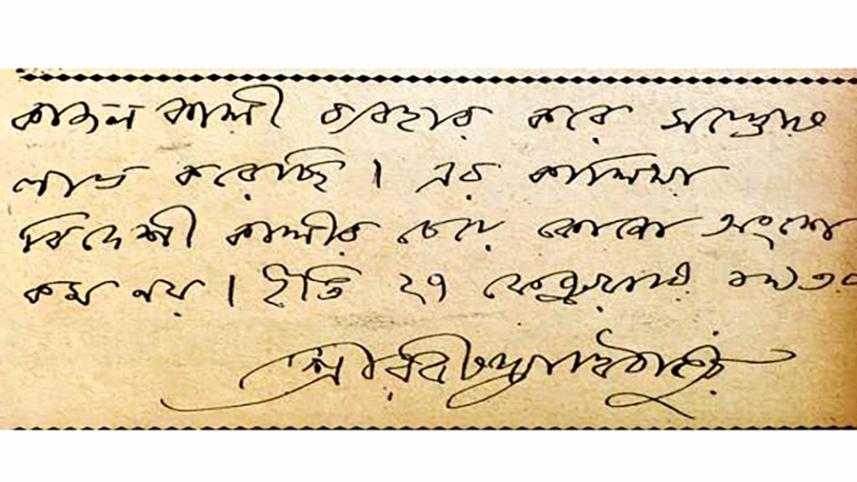 কাজল কালী ব্যবহার করে সন্তোষ
লাভ করেছি। এর কালিমা
বিদেশী কালীর চেয়ে কোনো অংশে
কম নয়। ইতি
শ্রীরবীন্দ্রনাথ ঠাকুর